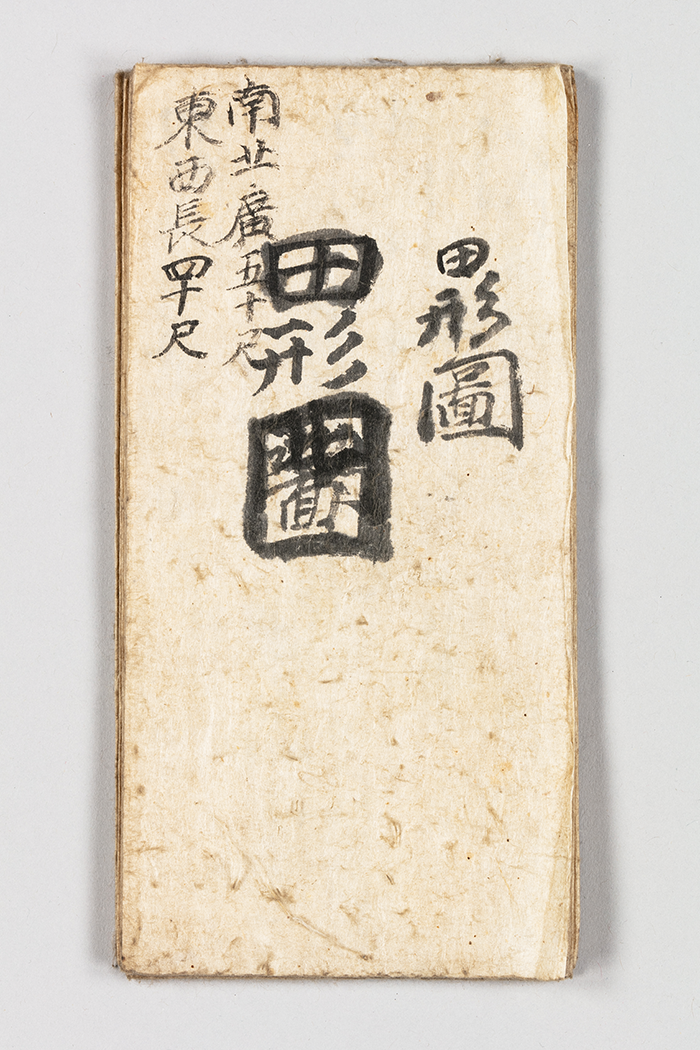 田形圖
田形圖
南北廣五十尺
東西長四十尺